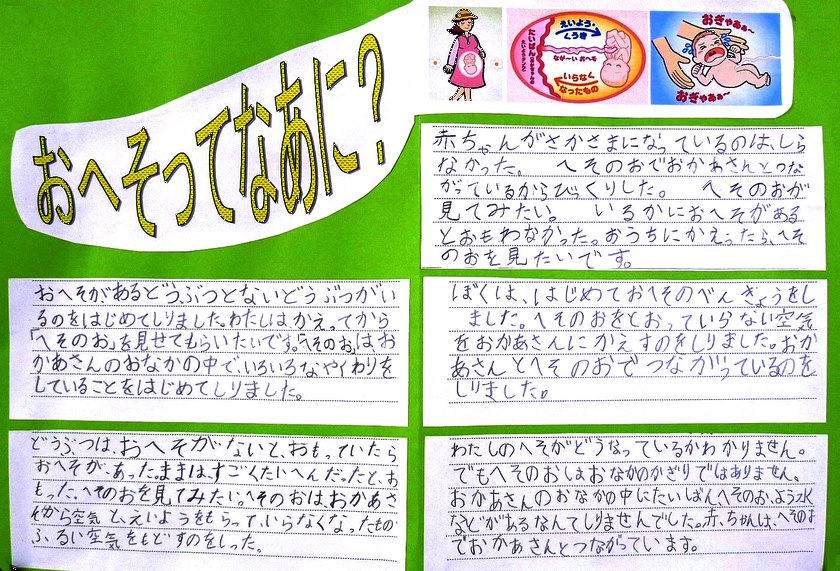 おへそってなあに?
えいよう・
くうき
たいばん
ながーい おへそ
いらなく
なったもの
おぎゃあぁ〜
おぎゃあぁ〜
赤ちゃんがさかさまになっているのは、しら
なかった。 へそのおでおかあさんとつな
がっているからびっくりした。 へそのおが
見てみたい。 いるかにおへそがある
とおもわなかった。おうちにかえったら、へそ
のおを見たいです。
おへそがあるどうぶつとないどうぶつがい
るのをはじめてしりました。わたしは、かえってから
「へそのお」を見せてもらいたいです。「へそのお」はお
かあさんのおなかの中で、いろいろなやくわりを
していることをはじめてしりました。
ぼくは、はじめておへそのべんきょうをし
ました。へそのおをとおっていらない空気
をおかあさんにかえすのをしりました。おか
あさんとへそのおでつながっているのを
しりました。
どうぶつは、おへそがないと、おもっていたら
おへそが、あった。ままは、すごくたいへんだったと、お
もった。へそのおを見てみたい。へそのおはおかあさ
んから空気と、えいようをもらって、いらなくなったもの・
ふるい空気をもどすのをしった。
わたしのへそがどうなっているかわかりません。
でもへそのおはおなかのかざりではありません。
おかあさんのおなかの中にたいばん、へそのお、よう水
などがあるなんてしりませんでした。赤ちゃんは、へそのお
でおかあさんとつながっています。